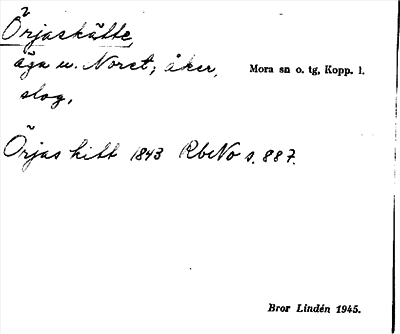 Örjaskätte,
äga u. Noret; åker,
slog.
Mora sn o. tg, Kopp. l.
Örjas kitt 1843 RbNo s. 887.
Bror Lindén 1945.